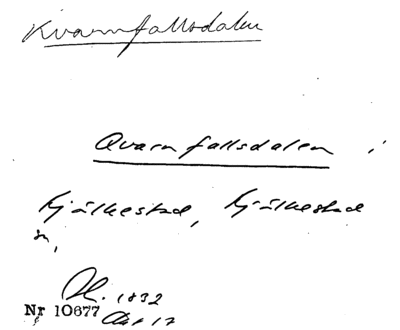 Kvarnfallsdalen
Qvarnfallsdalen i
Kjälkestad, Kjälkestad
sn,
1832
Nr 10677 Akt 17